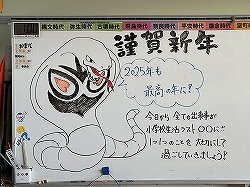 縄文時代 弥生時代 古墳時代 飛鳥時代 奈良時代 平安時代 鎌倉時代
謹賀新年
2025年も
最高の年に!
今日から 全ての出来事が
小学校生活ラスト〇〇に!!
1つ1つのことを 大切にして
過ごしていきましょう!